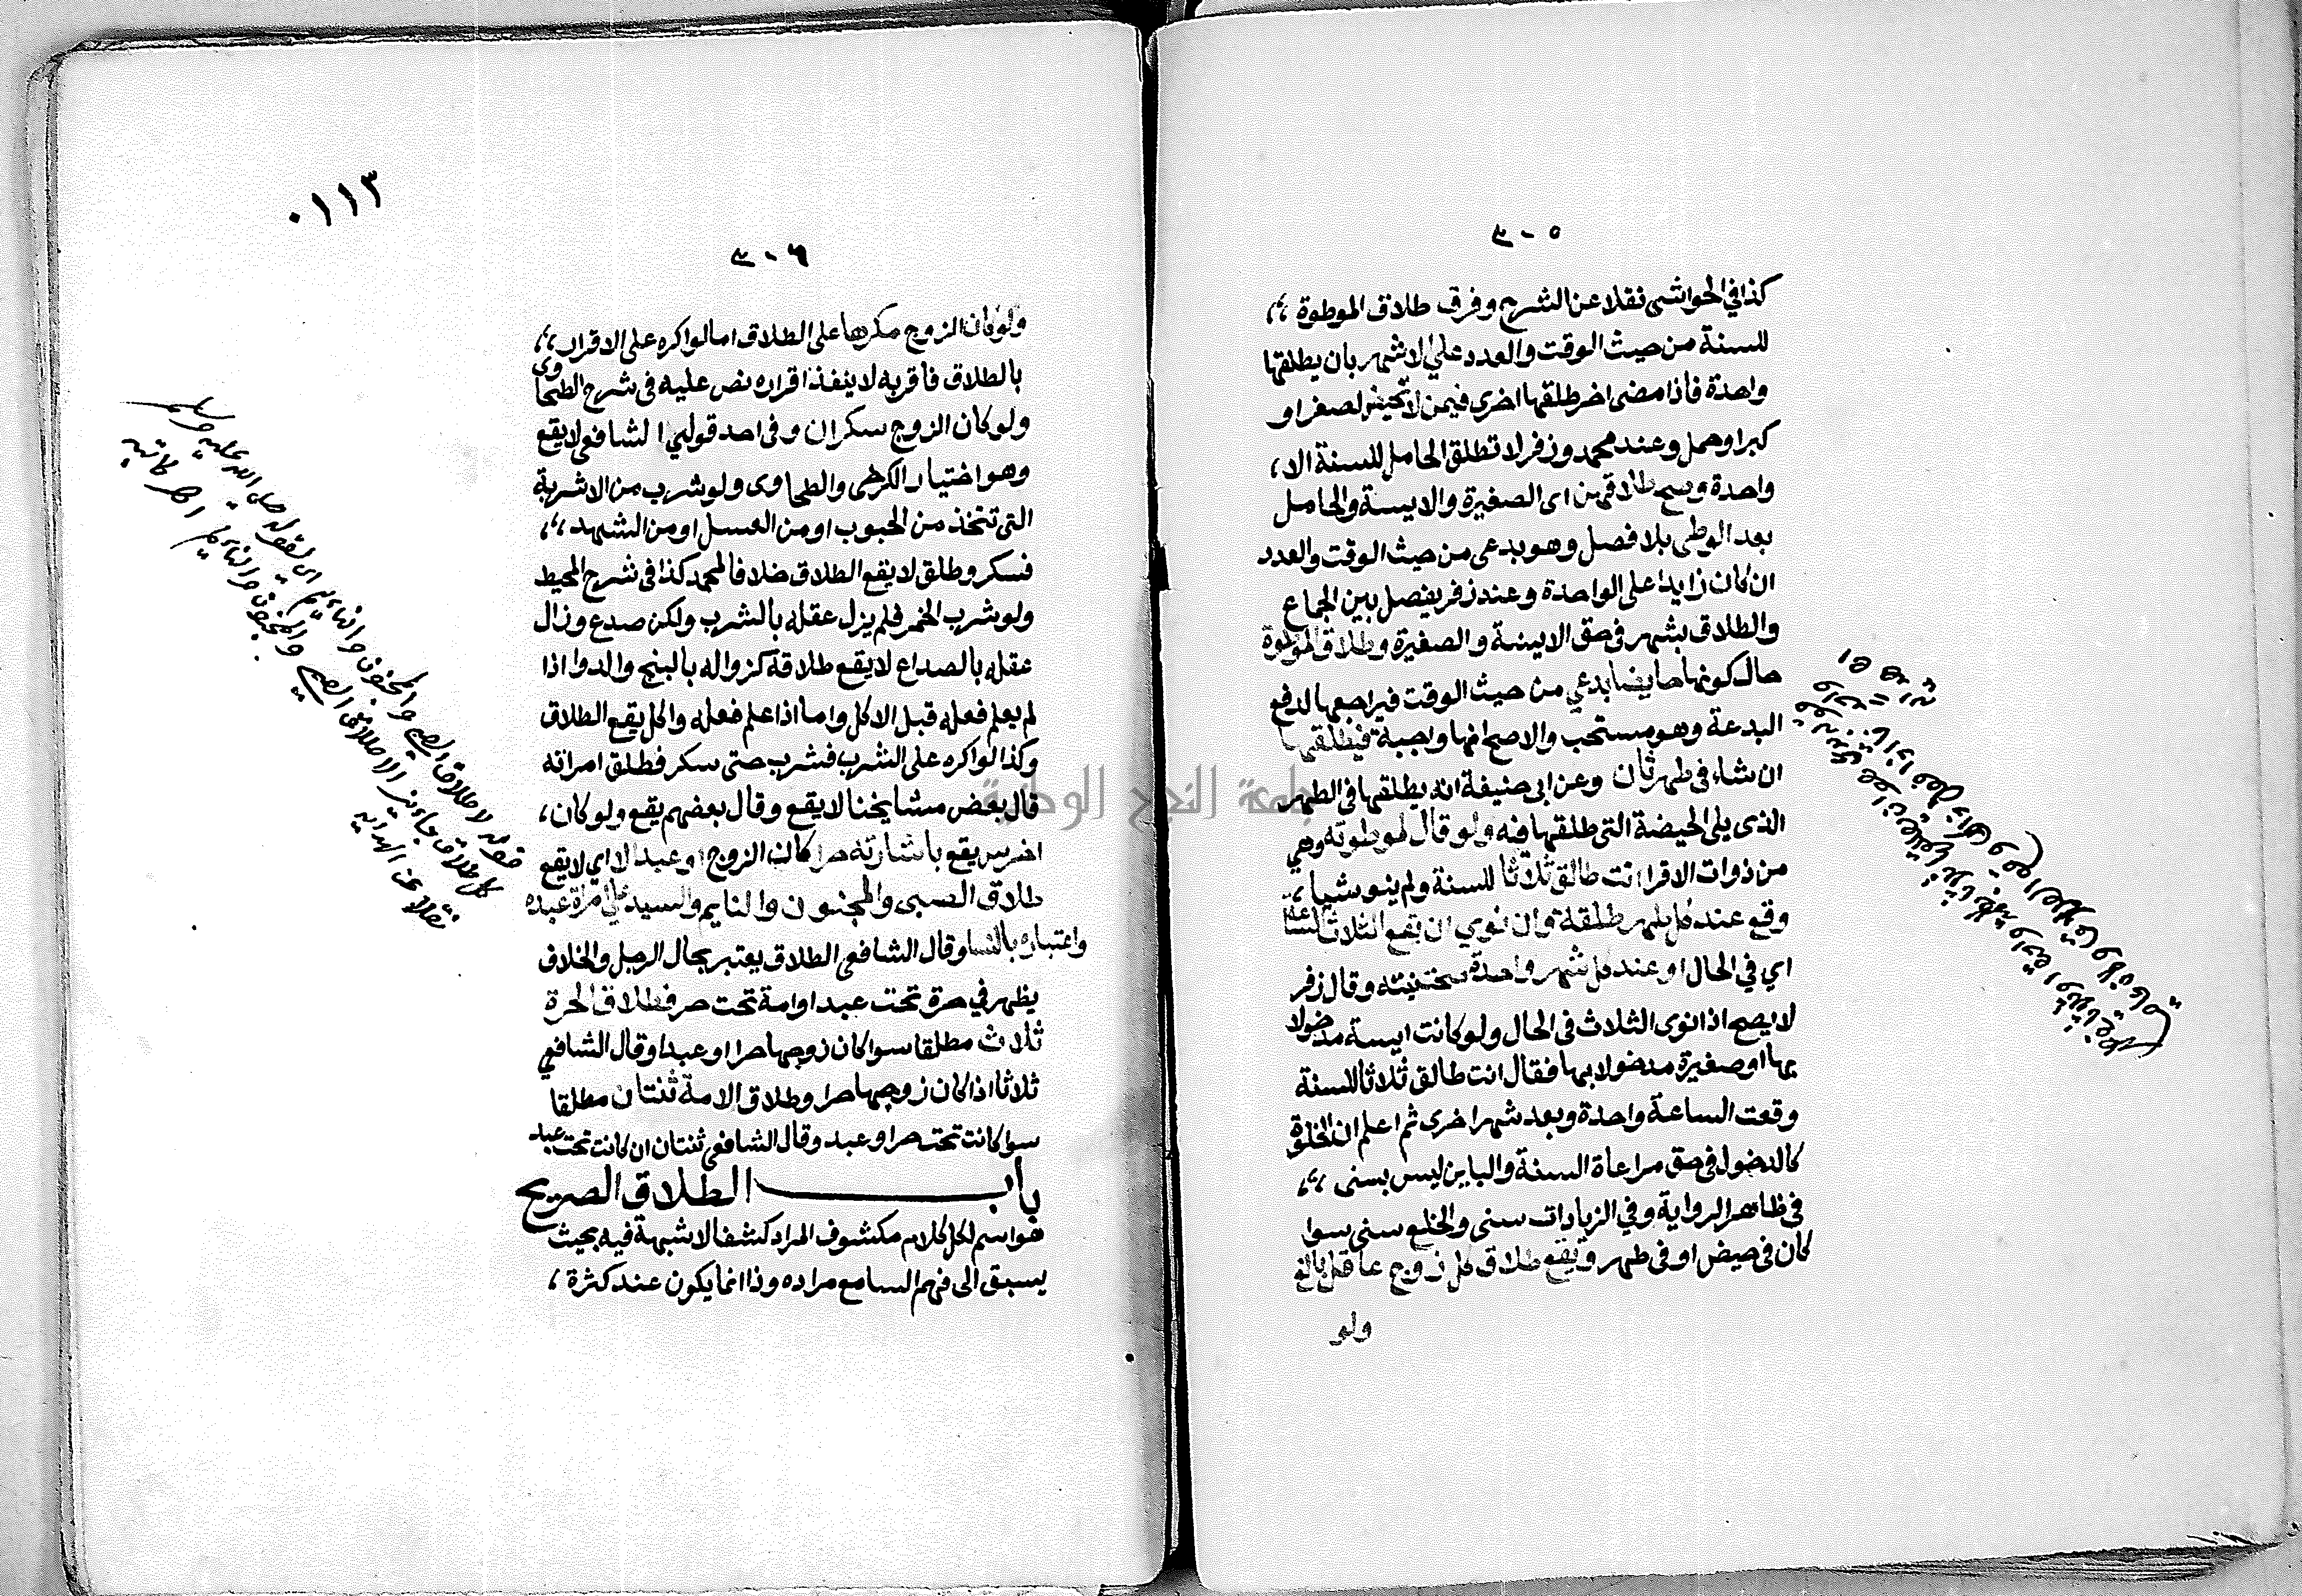 ٣٠٥
كذا في الحواشي نقلا عن الشرح وفرق طلاق الموطوة
للسنة من حيث الوقت والعدد علي الاشهر بان يطلقها
واحدة فاذا مضى اخر طلقها اخرى فيمن لا تحيض لصغر او
كبر او حمل وعند محمد وزفر لا تطلق الحامل للسنة الا
واحدة وصح طلاقهن اى الصغيرة والايسة والحامل
بعد الوطى بلا فصل وهو بدعى من حيث الوقت والعدد
ان كان زايدا على الواحدة وعند زفر يفصل بين الجماع
والطلاق بشهر في حق الايسة والصغيرة وطلاق الموطوة
حال كونها حايضا بدعي من حيث الوقت فيراجعها لدفع
البدعة وهو مستحب والاصح انها واجبة فيطلقها
ان شاء في طهر ثان وعن ابى حنيفة انه يطلقها في الطهر
الذى يلى الحيضة التى طلقها فيه ولو قال لموطوته وهي
من ذوات الاقرا انت طالق ثلاثا للسنة ولم ينو شيا
وقع عند كل طهر طلقة وان نوي ان يقع الثلاث الساعة
اي في الحال او عند كل شهر واحدة صحت نيته وقال زفر
لا يصح اذا نوى الثلاث في الحال ولو كانت ايسة مدخولا
بها او صغيرة مدخولا بها فقال انت طالق ثلاثا للسنة
وقعت الساعة واحدة وبعد شهر اخرى ثم اعلم ان الخلوة
كالدخول في حق مراعاة السنة والباين ليس بسنى
في ظاهر الرواية وفي الزيادات سنى والخلع سنى سوا
كان في حيض او في طهر ويقع طلاق كل زوج عاقل بالغ
ولو
٠١١٣
٣٠٦
ولو كان الزوج مكرها على الطلاق اما لو اكره على الاقرار
بالطلاق فاقر به لا ينفذ اقراره نص عليه في شرح الطحاوى
ولو كان الزوج سكران وفي احد قولي الشافعي لا يقع
وهو اختيار الكرخى والطحاوى ولو شرب من الاشربة
التى تتخذ من الحبوب او من العسل او من الشهد
فسكر وطلق لا يقع الطلاق خلافا لمحمد كذا في شرح المحيط
ولو شرب الخمر فلم يزل عقله بالشرب ولكن صدع وزال
عقله بالصداع لا يقع طلاقه كزواله بالبنج والدوا اذا
لم يعلم فعله قبل الاكل واما اذا علم فعله واكل يقع الطلاق
وكذا لو اكره على الشرب فشرب حتى سكر فطلق امراته
قال بعض مشايخنا لا يقع وقال بعضهم يقع ولو كان
اخرس يقع باشارته حرا كان الزوج او عبدا لا اي لا يقع
طلاق الصبى والمجنون والنايم والسيد علي امراة عبده
واعتباره بالنسا وقال الشافعى الطلاق يعتبر بحال الرجل والخلاف
يظهر في حرة تحت عبد او امة تحت حر فطلاق الحرة
ثلاث مطلقا سوا كان زوجها حرا او عبدا وقال الشافعي
ثلاثا اذا كان زوجها حرا وطلاق الامة ثنتان مطلقا
سوا كانت تحت حر او عبد وقال الشافعي ثنتان ان كانت تحت عبد
باب الطلاق الصريح
هو اسم لكل كلام مكشوف المراد كشفا لا شبهة فيه بحيث
يسبق الى فهم السامع مراده وذا انما يكون عند كثرة
قوله لا طلاق الصبي والمجنون والنايم اى لقوله صلى الله عليه وسلم
كل طلاق جايز الا طلاق الصبي والمجنون والنايم اهـ
نقلا عن الهداية
جامعة النجاح الوطنية